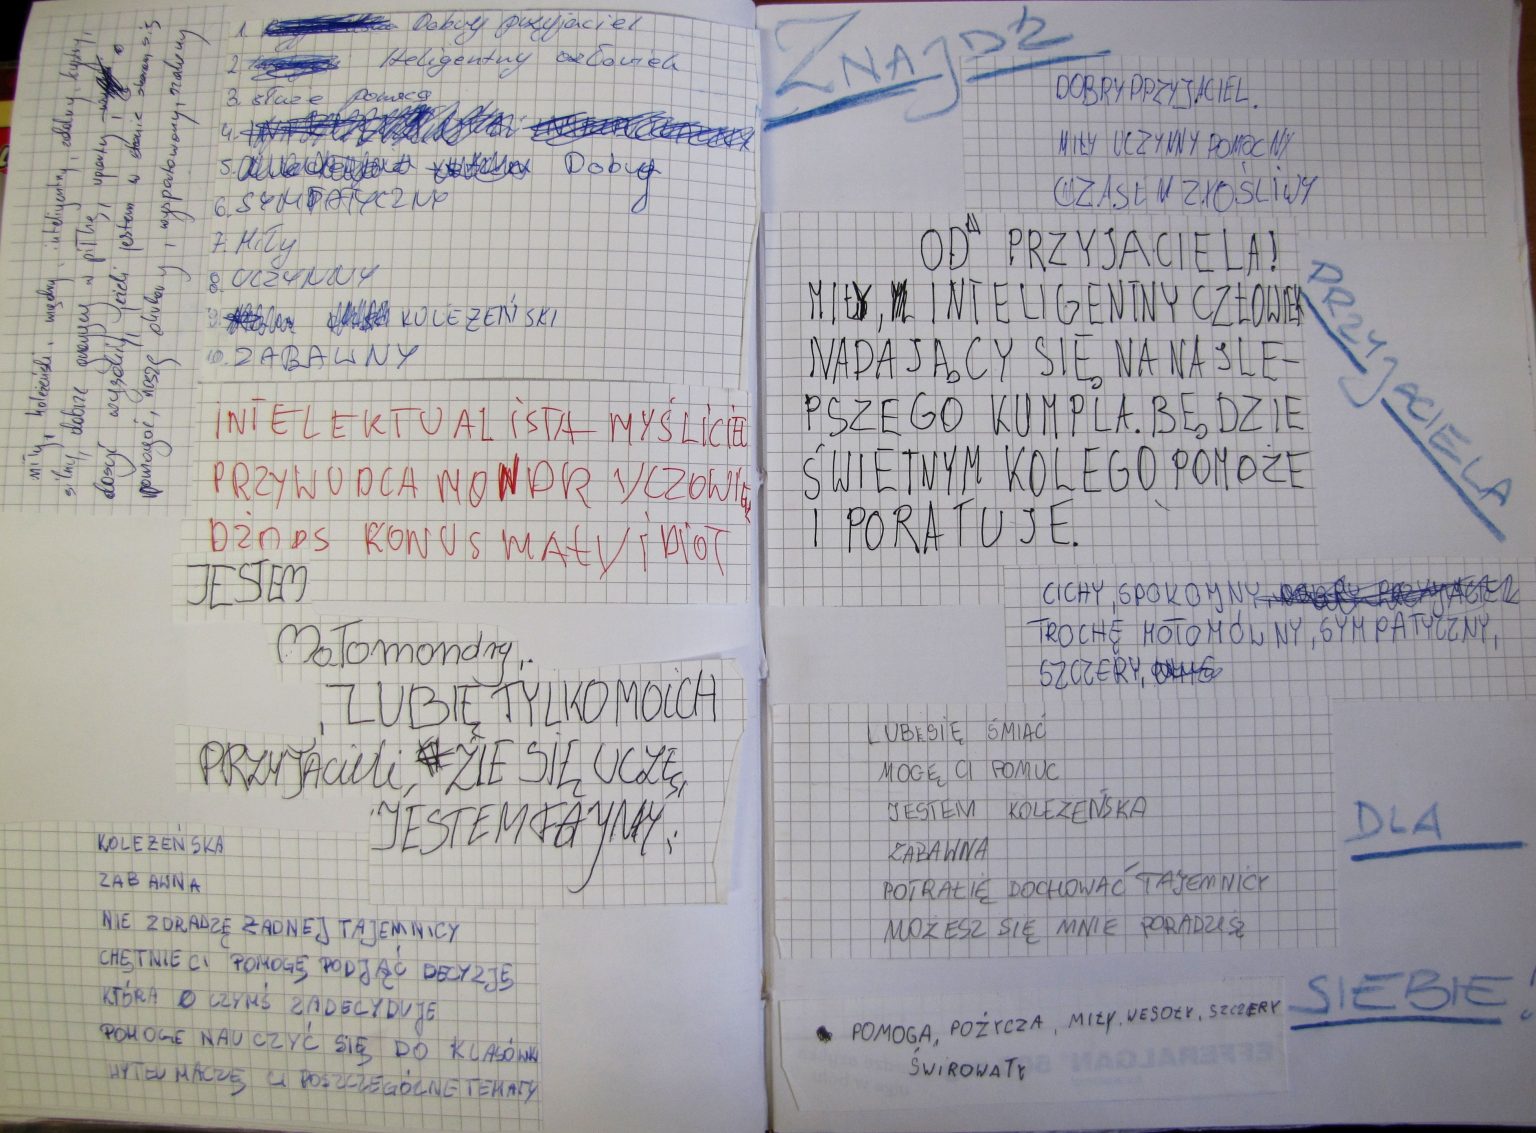 miły, koleżeński, mądry, inteligentny, fajny,
silny, dobrze gram w piłkę, uparty i
dosyć wysoki, jeżeli jestem w stanie staram się
pomagać, noszę okulary i wysportowany, zabawny
1. Dobry przyjaciel
2. Iteligentny człowiek
3. służe pomocą
4.
5. Dobry
6. SYMPATYCZNY
7. Miły
8. UCZYNNY
9. KOLEŻEŃSKI
10. ZABAWNY
INTELEKTUALISTA MYŚLICIEL
PRZYWUDCA MONDR YCZOWIEK
KONUS MAŁY IDIOT
JESTEM
Małomondry,
LUBIĘ TYLKO MOICH
PRZYJacieli, ŹLE SIĘ UCZĘ,
JESTEM FAJNY,
KOLEŻEŃSKA
ZABAWNA
NIE ZDRADZĘ ŻADNEJ TAJEMNICY
CHĘTNIE CI POMOGĘ PODJĄĆ DECYZJĘ
KTÓRA O CZYMŚ ZADECYDUJE
POMOGE NAUCZYĆ SIĘ DO KLASÓWKI
WYTŁUMACZĘ CI POSZCZEGÓLNE TEMATY
ZNAJDŹ
DOBRY PRZYJACIEL.
MIŁY UCZYNNY POMOCNY
CZASEM ZŁOŚLIWY
OD PRZYJACIELA!
MIŁY, INTELIGENTNY CZŁOWIEK
NADAJĄCY SIĘ NA NAJLE-
PSZEGO KUMPLA. BĘDZIE
ŚWIETNYM KOLEGO POMOŻE
I PORATUJE.
PRZYJACIELA
CICHY, SPOKOJNY,
TROCHĘ MOŁOMÓWNY, SYMPATYCZNY,
SZCZERY,
LUBIĘ SIĘ ŚMIAĆ
MOGĘ CI POMUC
JESTEM KOLEŻEŃSKA
ZABAWNA
POTRAFIĘ DOCHOWAĆ TAJEMNICY
MOŻESZ SIĘ MNIE PORADZIŚ
DLA
SIEBIE!
POMOGA, POŻYCZA, MIŁY, WESOŁY, SZCZERY
ŚWIROWATY